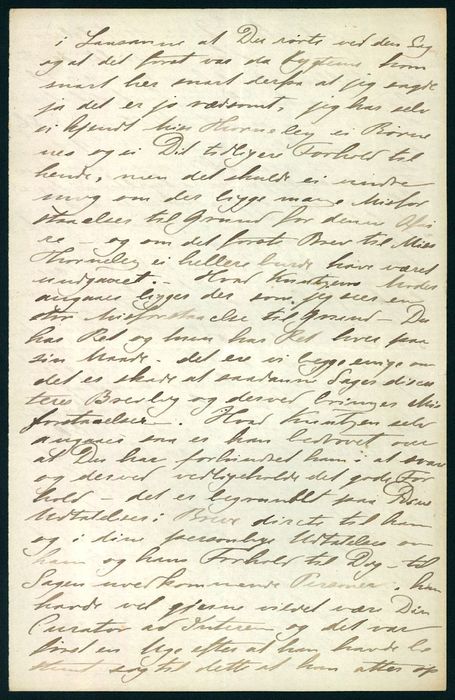 i Lausanne at Du rørte ved den Sag
og at det først var da Brevene kom
snart her snart derfra at jeg sagde
ja det er jo voldsomt, jeg har selv
ei kjendt Miss Thorneley ei Børne
nes og ei Dit tidligere Forhold til
hende, men det skulde ei undre
mig om der ligge mange Misfor
staaelser til Grund for denne Affai
re og om det første Brev til Miss
Thorneley ei hellere burde have været
undgaaet. Hvad Knutzens Moder
angaaer ligger der som jeg seer en
stor Misforstaaelse til Grund – Du
har Ret og hun har Ret hver paa
sin Maade. det ere vi begge enige om
det er skade at saadanne Sager discu
tere Brevlig og derved bringer Mis
forstaaelser. Hvad Knutzen selv
angaaer saa er han bedrøvet over
at Du har forhindret ham i at svare
og derved vedligeholde det gode For
hold – det er begrundet paa Dine
Udtalelser i Breve directe til ham
og i dine personlige Udtalelser om
ham og hans Forhold til Dig – til
Sagen uvedkommende Personer. han
havde vel gjerne villet være Din
Curator ad Interim og det var
først en Uge efter at han havde be
stemt sig til dette at han atter op